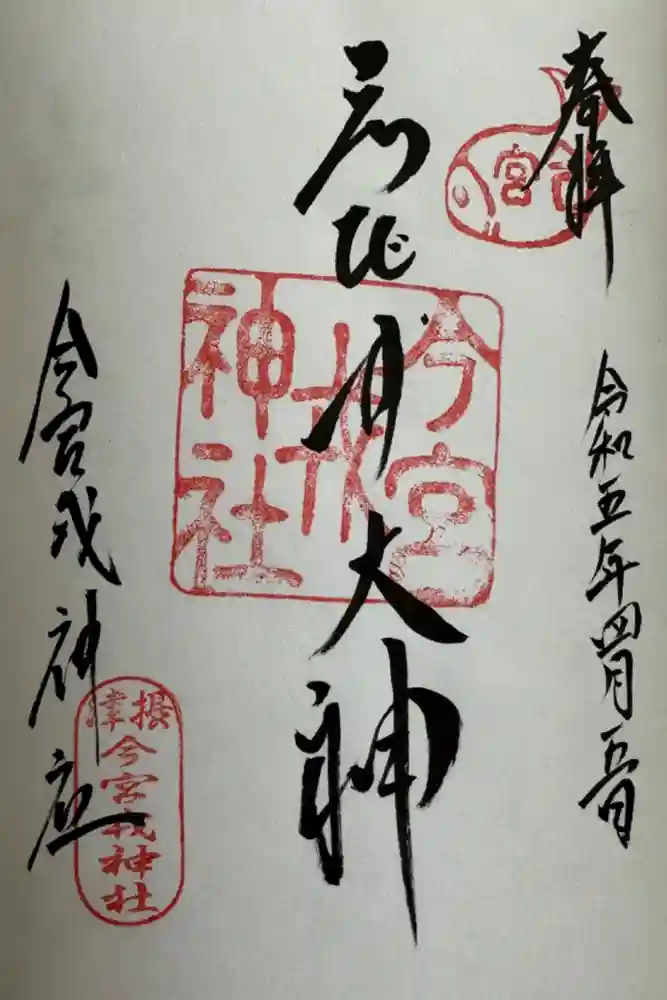 奉拝
今宮
令和五年四月五日
ゑびす大神
今宮戎神社
今宮戎神社
攝津
今宮戎神社